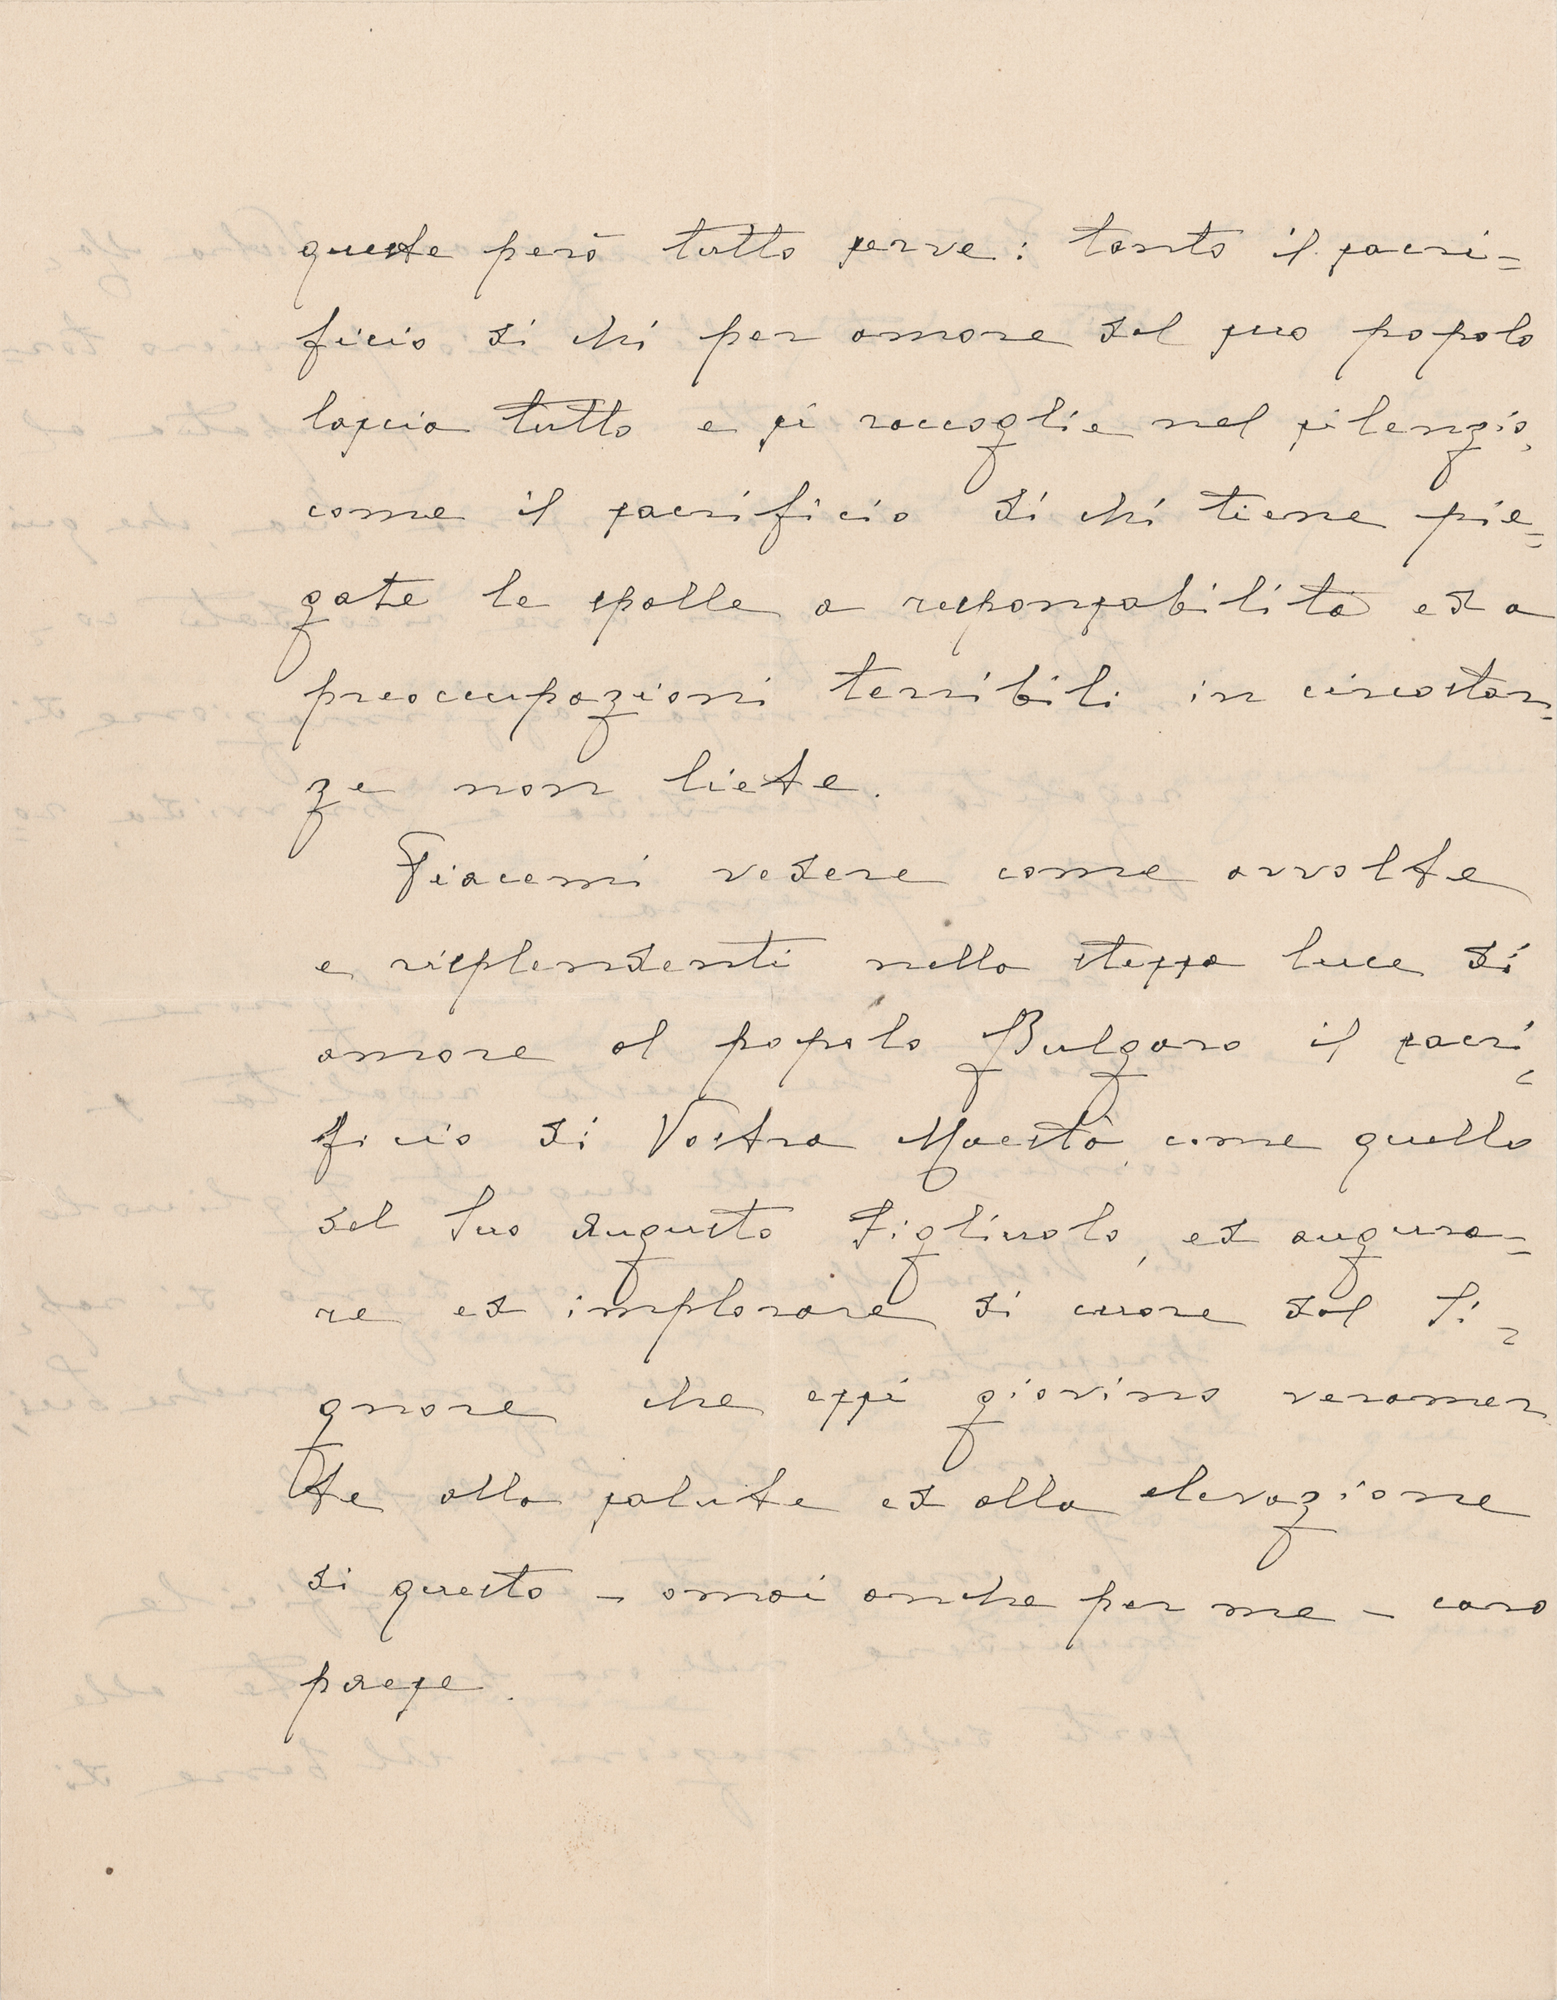 queste però tutto serve: tanto il sacri=
ficio di chi per amore del suo popolo
lascia tutto e si raccoglie nel silenzio,
come il sacrificio di chi tiene pie=
gate le spalle a responsabilità ed a
preoccupazioni terribili in circostan=
ze non liete.
Piacemi vedere come avvolte
e risplendenti nella stessa luce di
amore al popolo Bulgaro il sacri=
ficio di Vostra Maestà, come quello
del Suo Augusto Figliuolo, ed augura=
re ed implorare di cuore dal Si=
gnore che essi giovino veramen
te alla salute ed alla elevazione
di questo – omai anche per me – caro
paese.